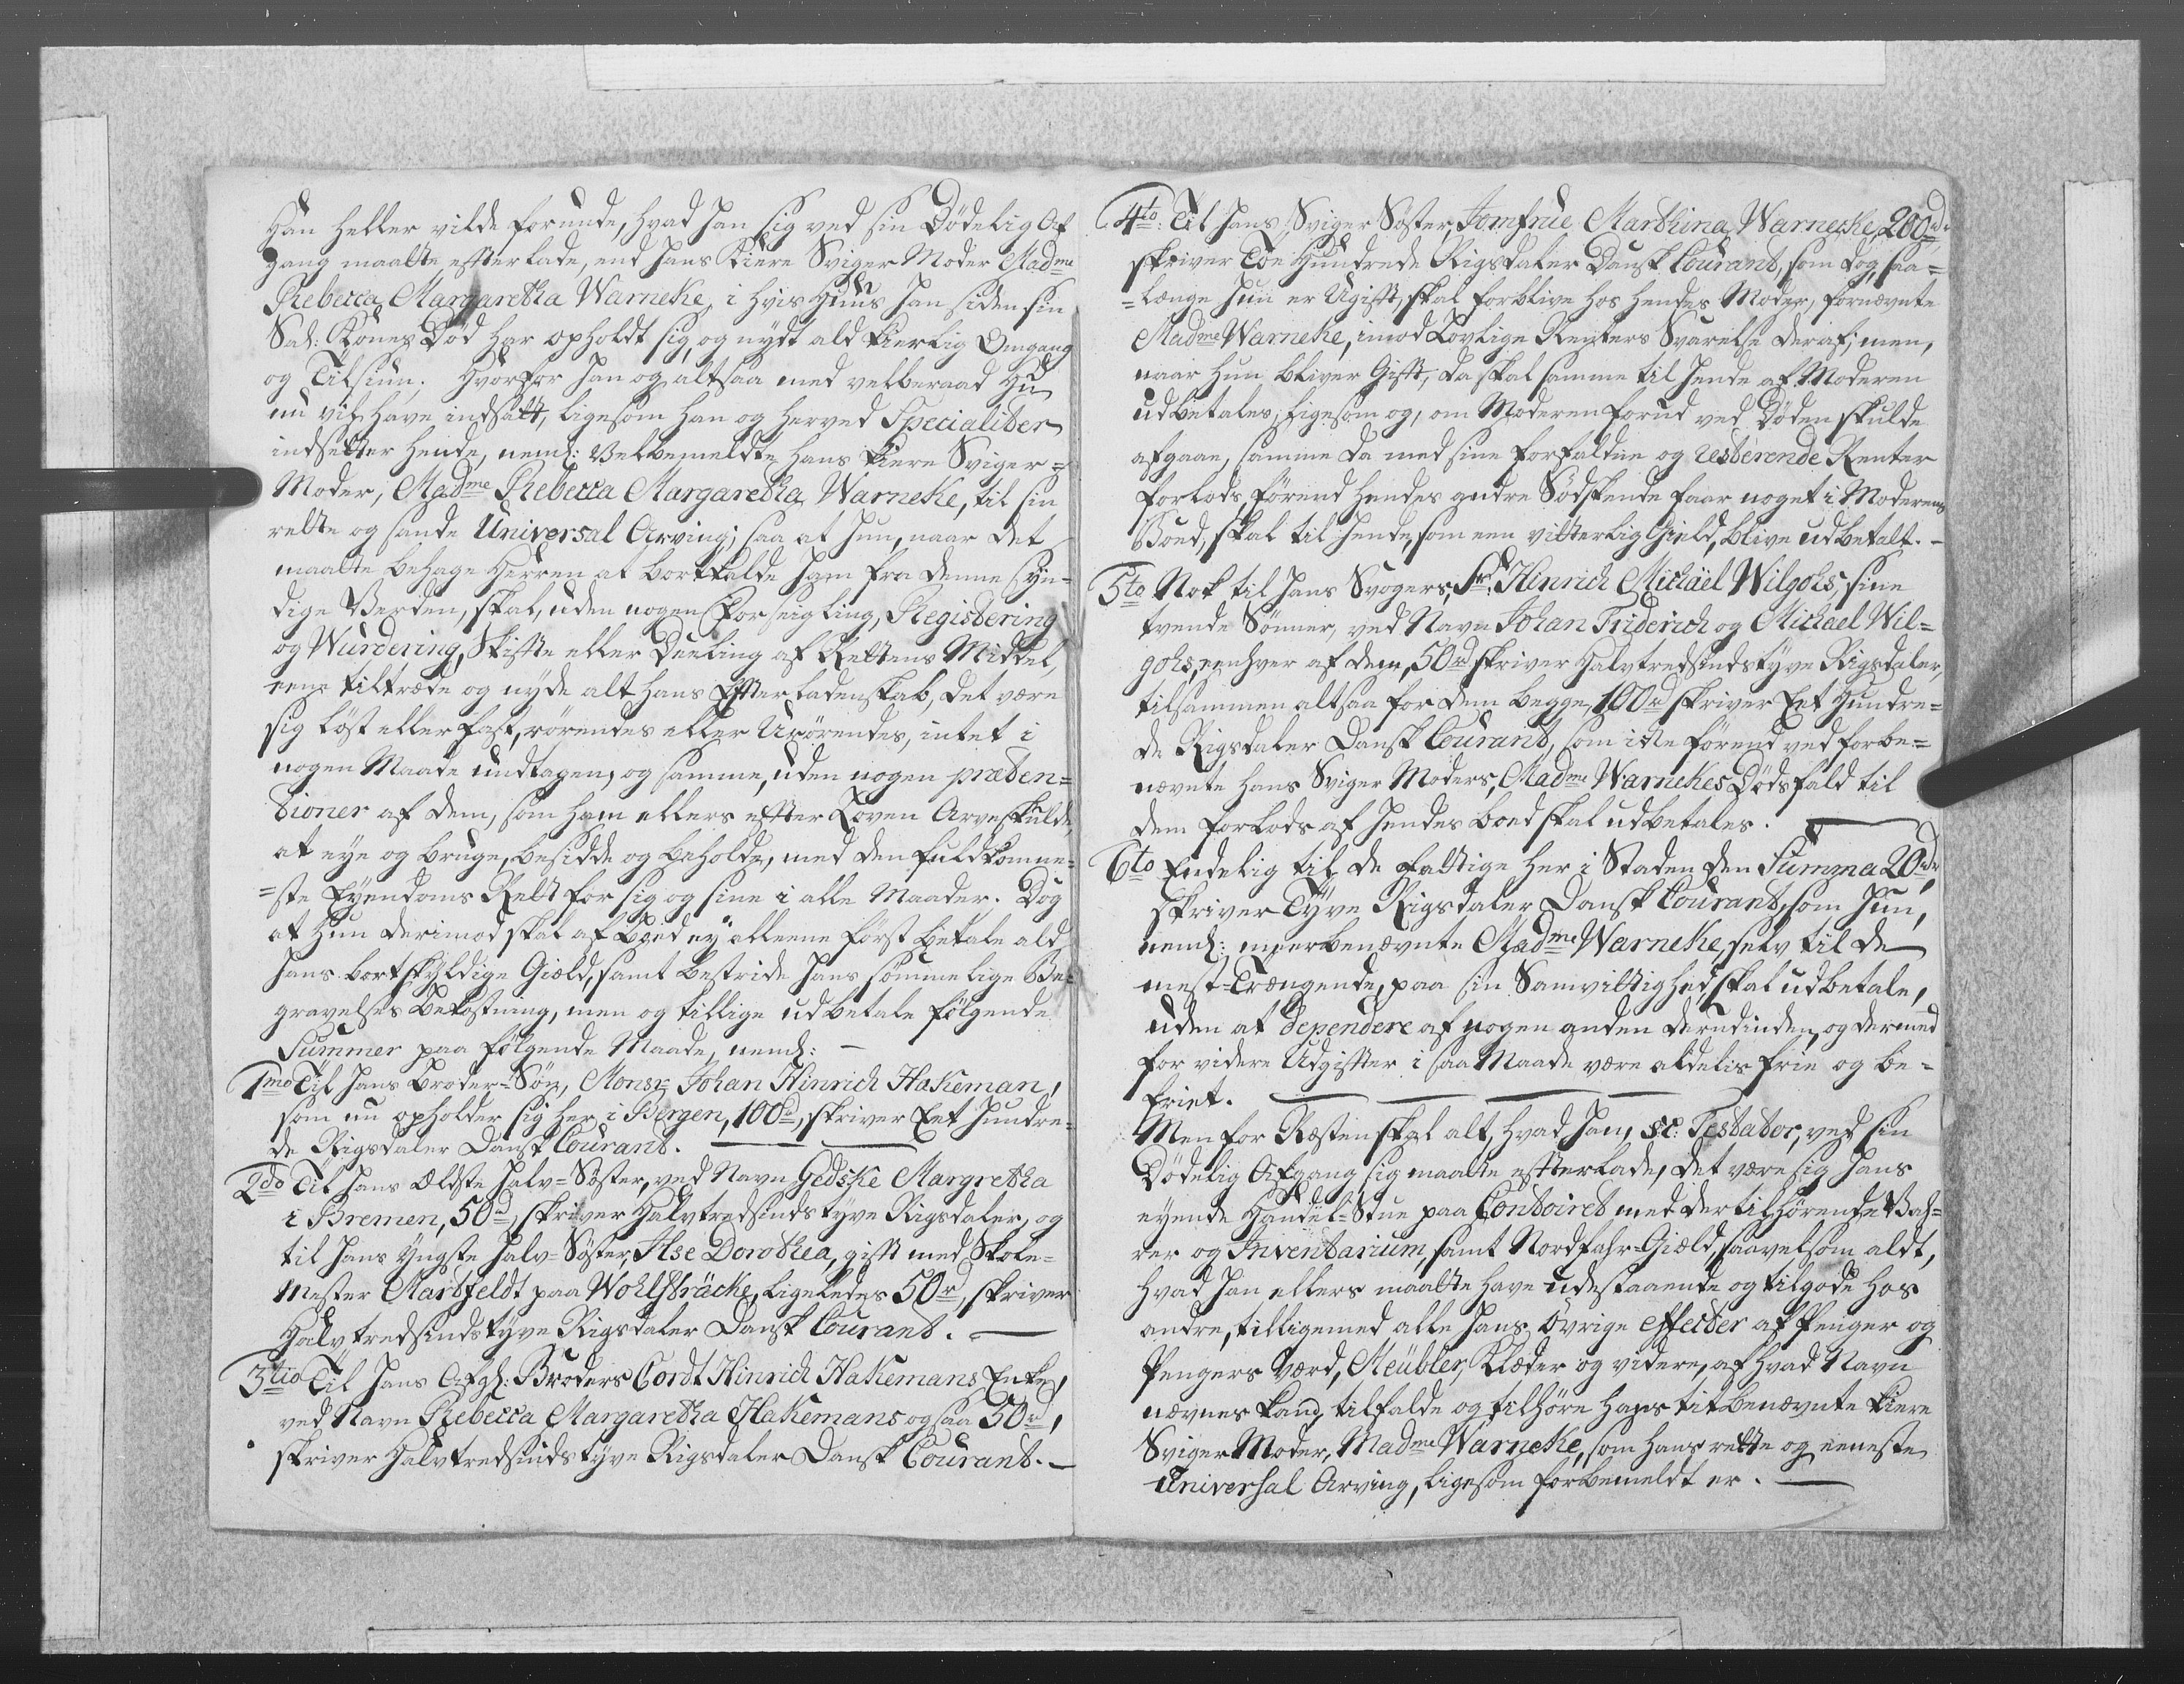 Han heller vilde forunde, hvad han sig ved sin Dödelig Af
gang maatte efterlade, end hans Kiere Sviger Moder Madme
Rebecca Margaretha Warneke, i hvis Huus han siden sin
Sal: Kones Död har opholdt sig, og nydt ald kierlig Omgang
og Tilsiun. Hvorfor han og altsaa med velberaad Hu
nu vil have indsatt, ligesom han og herved Specialiter
indsetter hende, neml: Velbemeldte hans kiere Sviger=
Moder, Madme Rebecca Margaretha Warneke, til sin
rette og sande Universal Arving; saa at hun, naar det
maatte behage Herren at bortkalde ham fra denne Syn=
dige Verden, skal, uden nogen Forseigling, Registering
og Wurdering, Skifte eller Deeling af Rettens Middel,
eene tiltræde og nyde alt hans Efterladenskab, det være
sig löst eller fast, rörendes eller Urörendes, intet i
nogen Maade undtagen, og samme, uden nogen præten=
tioner af dem, som ham ellers efter Loven Arve skulde,
at eye og bruge, besidde og beholde, med den fuldkomne=
=ste Eyendoms Rett for sig og sine i alle Maader. Dog
at hun derimod skal af boed ey alleene först betale ald
hans bortskyldige Giæld, samt bestride hans sömmelige Be=
gravelses bekostning, men og tillige udbetale fölgende
Summer paa fölgende Maade, neml: –
1mo Til hans Broder=Sön, Monsr: Johan Hinrich Hakeman,
som nu opholder sig her i Bergen, 100rd, skriver Eet Hundre=
de Rigsdaler Dansk Courant.
2do Til hans Ældste halv=Söster, ved Navn Gedske Margretha
i Bremen, 50rd, skriver Halvtredsindstyve Rigsdaler, og
til hans Yngste halv=Söster, Ilse Dorothea, gift med Skole=
Mester Martfeldt paa Wohlsträcke, ligeledes 50rd, skriver
Halvtredsindstyve Rigsdaler Dansk Courant.
3tio Til hans Afg: Broders Cordt Hinrich Hakemans Enke,
ved Navn Rebecca Margaretha Hakemans ogsaa 50rd,
skriver Halvtredsindstyve Rigsdaler Dansk Courant.
4to: Til hans Sviger Söster, Jomfrue Marthina Warneke, 200rd.
skriver Toe Hundrede Rigsdaler Dansk Courant, som dog, saa=
=længe hun er Ugift, skal forblive hos hendes Moder, fornævnte
Madme Warneke, imod Lovlige Renters Svarelse deraf; men,
naar hun bliver Gift, da skal samme til hende af Moderen
udbetales; ligesom og, om Moderen forud ved Döden skulde
afgaae, samme da med sine forfaldne og resterende Renter
forlods, förend hendes andre Södskende faar noget i Moderens
Boed, skal til hende, som een vitterlig Gield, blive udbetalt. –
5to Nok til hans Svogers, Sr. Hinrich Michäel Wilgohs, sine
tvende Sönner, ved Navn Johan Friderich og Michael Wil=
gohs, eenhver af dem, 50rd skriver Halvtredsindstyve Rigsdaler,
tilsammen altsaa for dem begge, 100rd skriver Eet Hundre=
de Rigsdaler Dansk Courant, som ikke förend ved forbe=
nævnte hans Sviger Moders, Madme Warnekes Dödsfald til
dem forlods af hendes boed skal udbetales.
6to Endelig til de fattige her i Staden den Summa 20rdr
skriver Tyve Rigsdaler Dansk Courant, som hun,
neml: meerbenævnte Madme Warneke, selv til de
mest=Trængende, paa sin Samvittighed, skal udbetale,
uden at dependere af nogen anden derudinden, og dermed
for videre Udgifter i saa Maade være aldelis frie og be=
friet.
Men for Resten skal alt, hvad han, sc: Testator, ved sin
Dödelig Afgang sig maatte efterlade, det være sig hans
eyende Handel=Stue paa Contoiret med dertilhörende Vah=
rer og Inventarium, samt Nordfahr=Giæld, saavelsom aldt,
hvad han ellers maatte have udestaaende og tilgode hos
andre, tilligemed alle hans övrige effecter af Penger og
Pengers værd, Meubler, Klæder og videre, af hvad Navn
nævnes kand, tilfalde og tilhöre hans titbenævnte kiere
Sviger Moder, Madme Warneke, som hans rette og eeneste
Universal Arving, ligesom forbemeldt er.